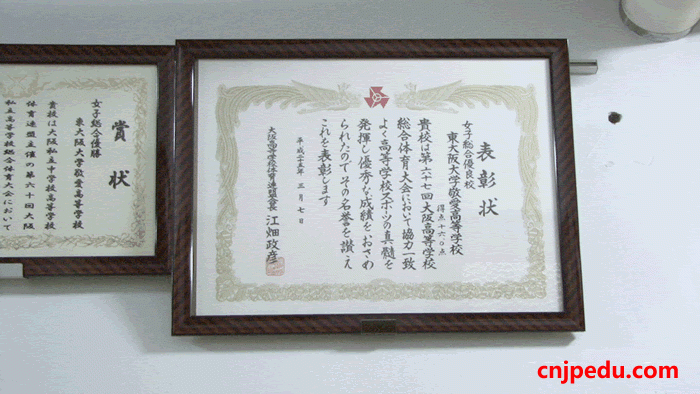 表彰状
女子総合優良校
東大阪大学敬愛高等学校
得点十六〇点
貴校は第六十七回大阪高等学校
総合体育大会において協力一致
よく高等学校スポーツの真髄を
発揮し優秀な成績をおさめ
られたのでその名誉を讃え
これを表彰します
平成二十五年三月七日
大阪高等学校体育連盟会長 江畑政彦
賞状
女子総合優勝
東大阪大学敬愛高等学校
貴校は大阪私立中学校高等学校
体育連盟主催の第六十回大阪
私立高等学校総合体育大会において
cnjpedu.com